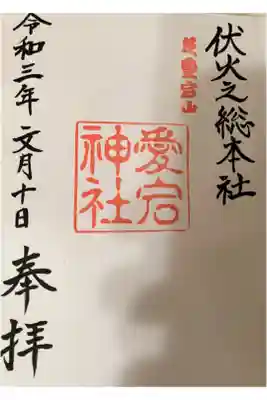 伏火之総本社
愛宕
神社
令和三年 文月十日 奉拝